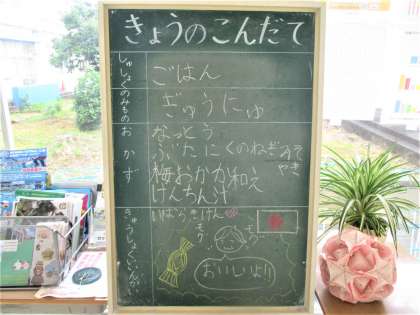 きょうのこんだて
しゅしょく
ごはん
のみもの
ぎゅうにゅ
おかず
なっとう
ぶたにくのねぎみそ
やき
梅おかか和え
けんちん汁
いばらきけん
きゅうしょくいいんかい
モグ
モグ
おいしいよ!!